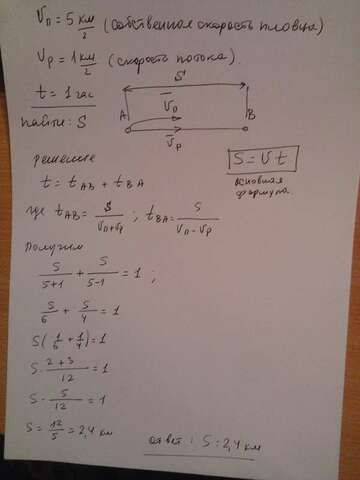 Vп = 5 км/2 (собственная скорость пловца)
Vр = 1 км/2 (скорость потока).
t = 1 час
S
A V̄п B
V̄р
найти: S
решение
S = V t
основная
формула.
t = tAB + tBA
где tAB = S/(Vп+Vр) ; tBA = S/(Vп - Vр)
Получим
S/(5+1) + S/(5-1) = 1 ;
S/6 + S/4 = 1
S(1/6 + 1/4) = 1
S · (2+3)/12 = 1
S · 5/12 = 1
S = 12/5 = 2,4 км
ответ: S = 2,4 км